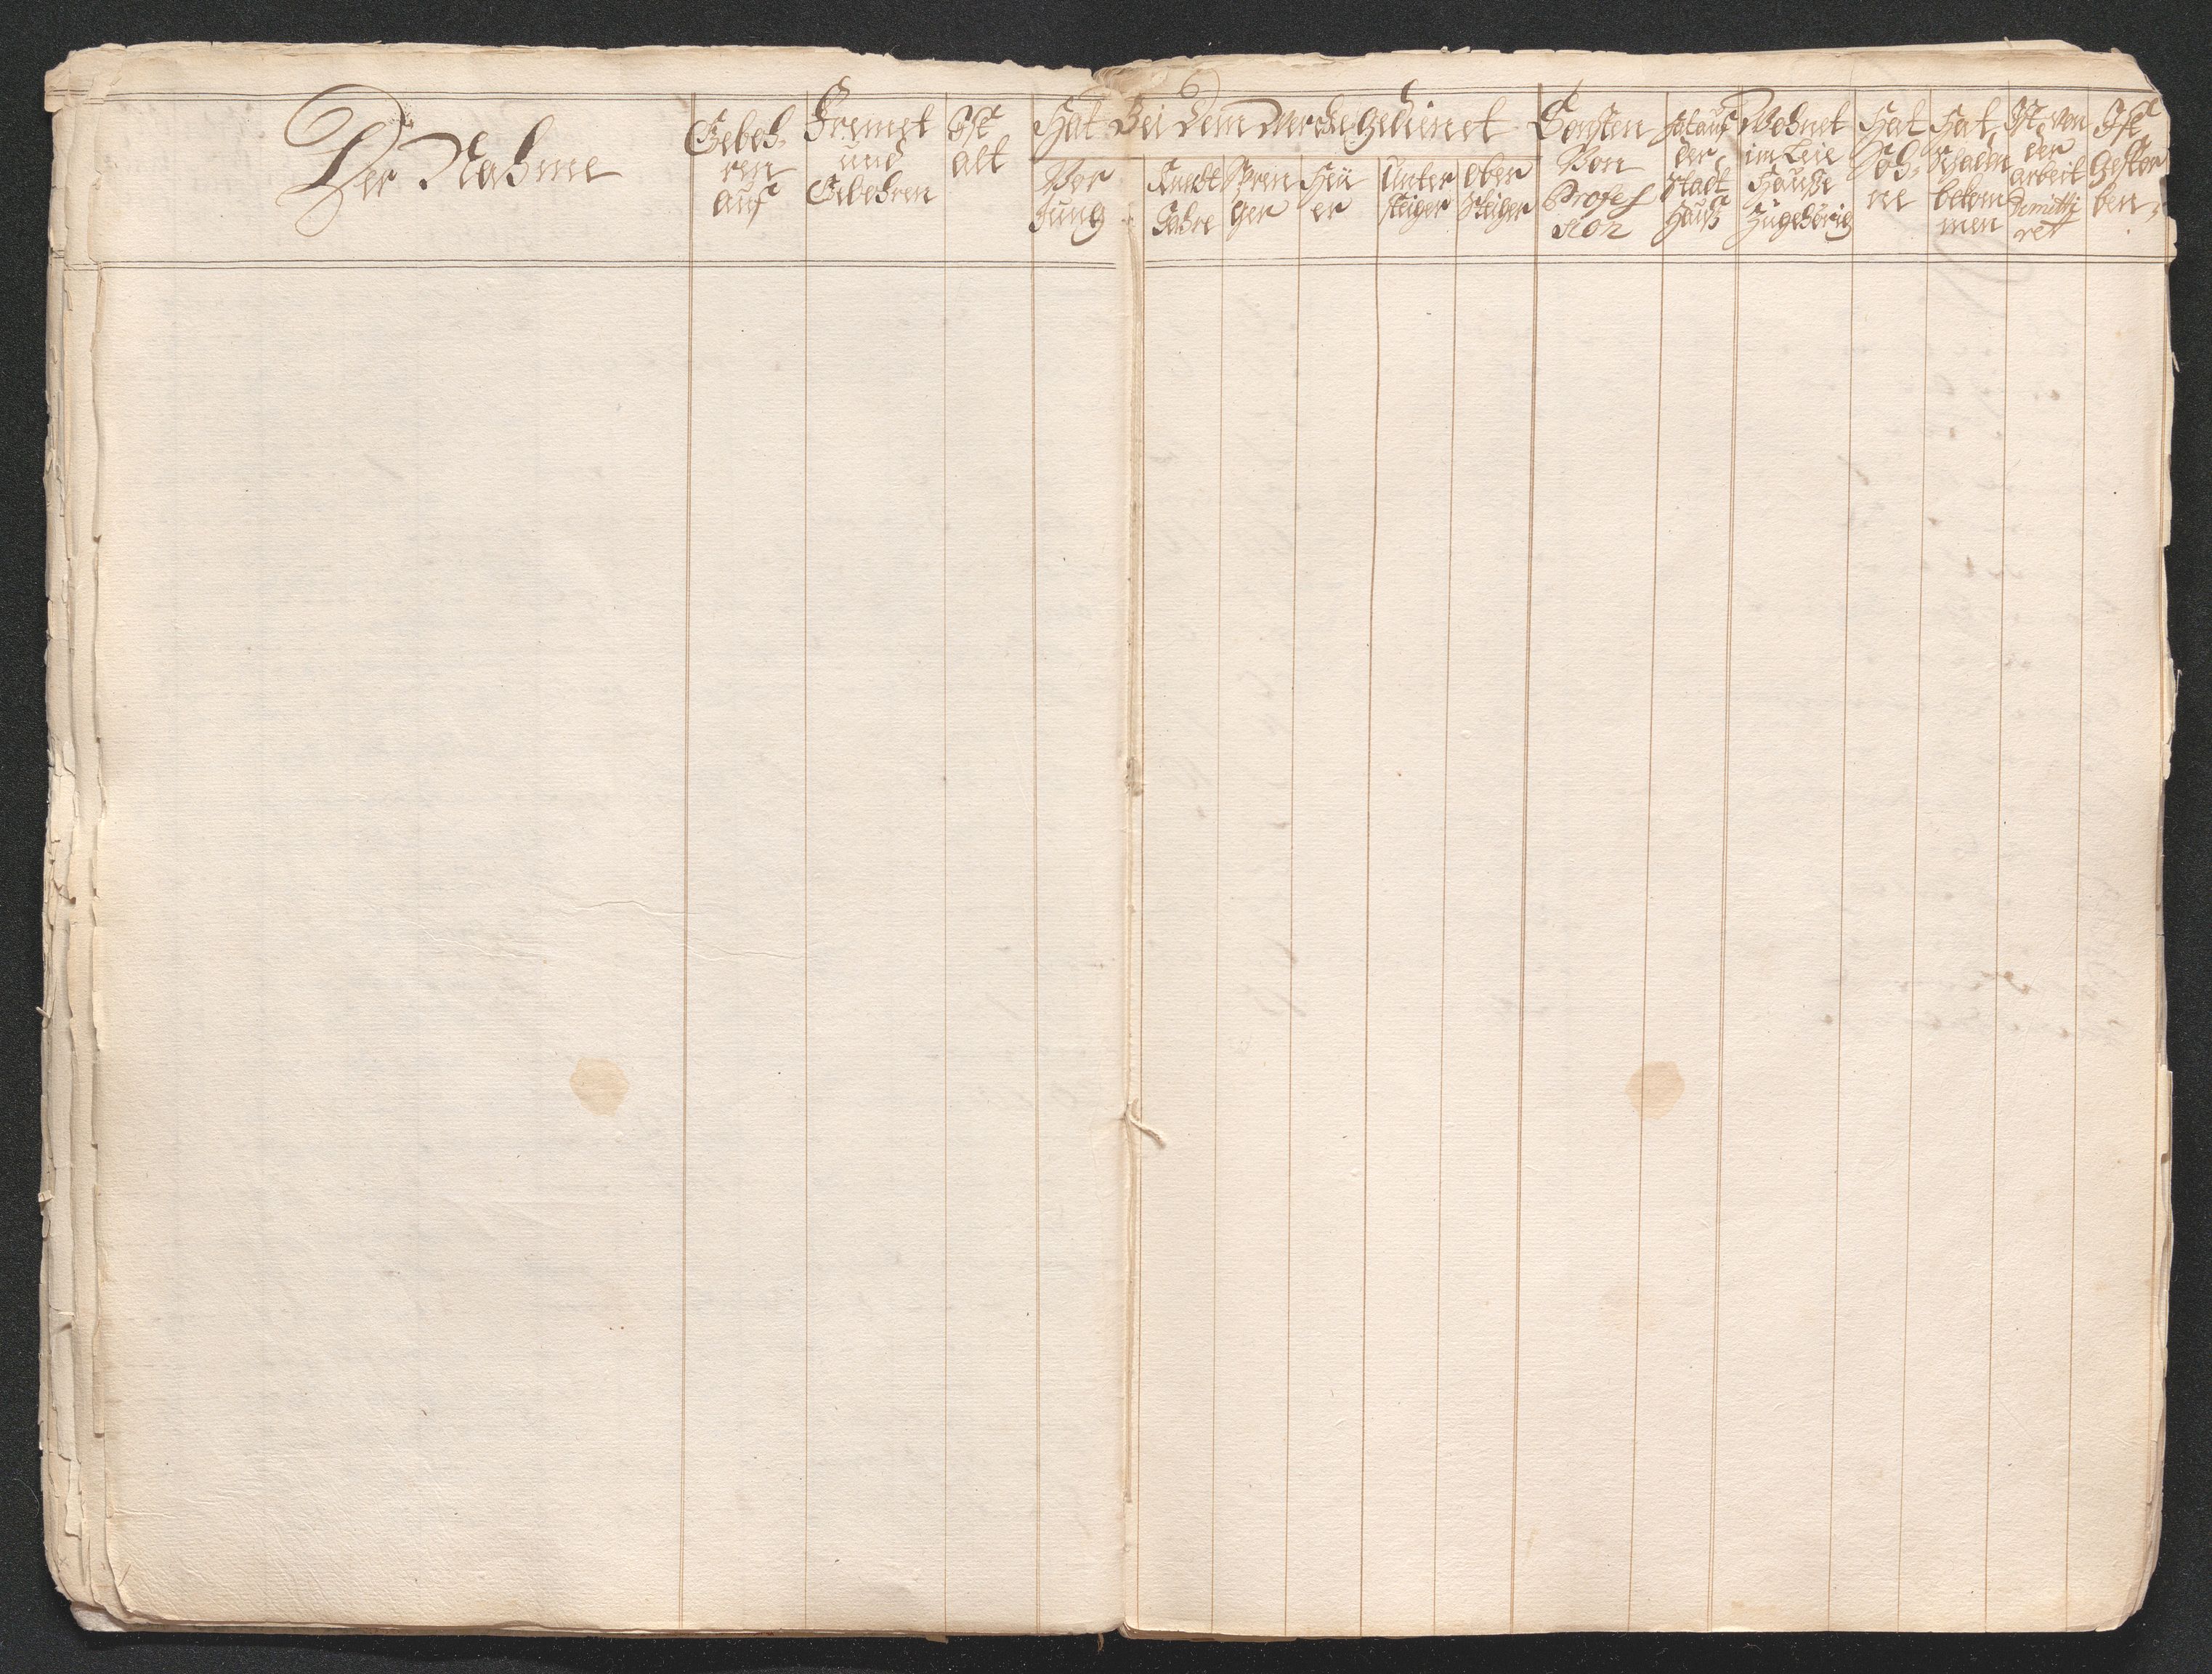 Der Nahme
Geboh,
ren
auf
Fremet
und
Gebohren
Ist
alt
Hat Bei dem Wercke gedienet
Vor
Jung
Knecht
Jahre
Spren
ger
Heü
er
Unter
steiger
Ober
Steiger
Sonsten
Von
Profes
sion
Hat auf
der
Stadt
Hauß
Wohnet
im Leie
Hauße
Zugehörig
Hat
Söh,
ne
Hat
Schaden
bekom
men
Ist von
der
arbeit
Dimitti
ret
Ist
Gestor
ben,